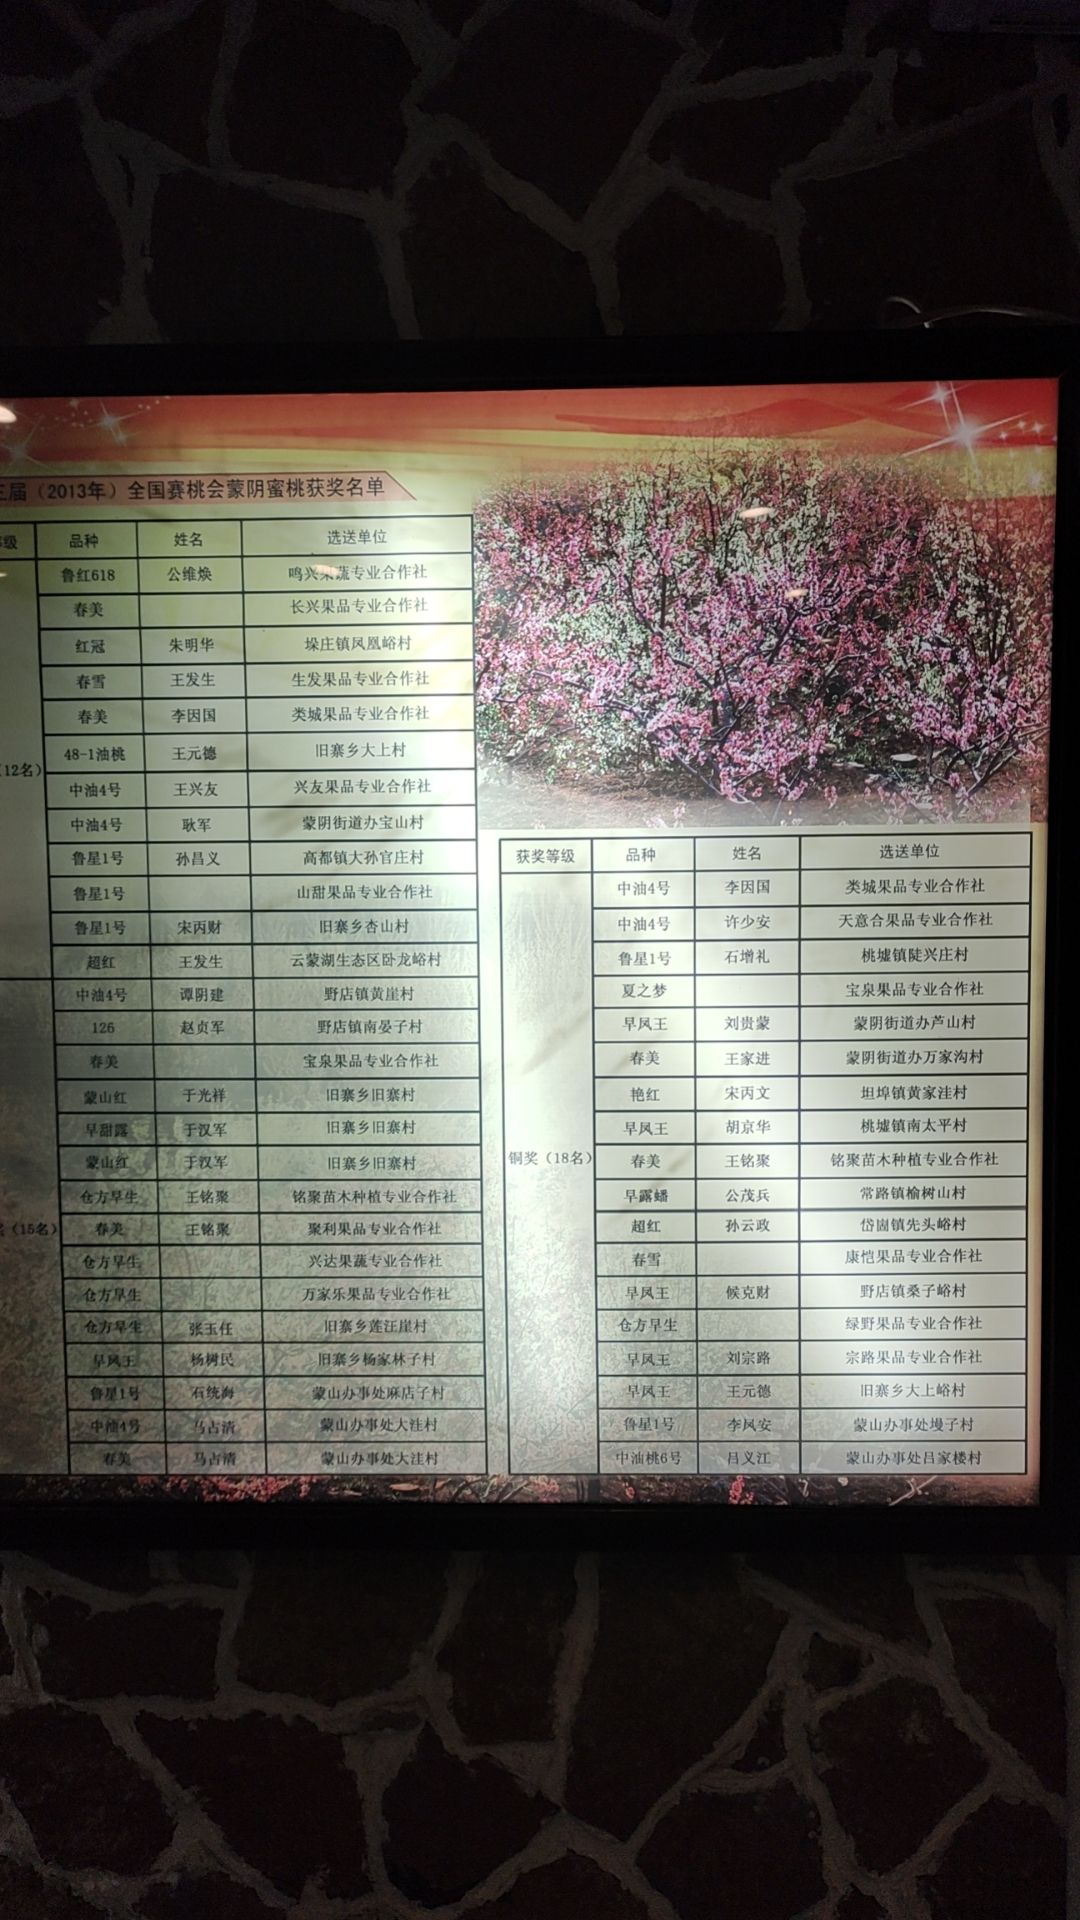 三届（2013年）全国赛桃会蒙阴蜜桃获奖名单
级 品种 姓名 选送单位
鲁红618 公维焕 鸣兴果蔬专业合作社
春美 长兴果品专业合作社
红冠 朱明华 垛庄镇凤凰峪村
春雪 王发生 生发果品专业合作社
春美 李因国 类城果品专业合作社
48-1油桃 王元德 旧寨乡大上村
（12名）
中油4号 王兴友 兴友果品专业合作社
中油4号 耿军 蒙阴街道办宝山村
鲁星1号 孙昌义 高都镇大孙官庄村
鲁星1号 山甜果品专业合作社
鲁星1号 宋丙财 旧寨乡杏山村
超红 王发生 云蒙湖生态区卧龙峪村
中油4号 谭阴建 野店镇黄崖村
126 赵贞军 野店镇南晏子村
春美 宝泉果品专业合作社
蒙山红 于光祥 旧寨乡旧寨村
早甜露 于汉军 旧寨乡旧寨村
蒙山红 于汉军 旧寨乡旧寨村
仓方早生 王铭聚 铭聚苗木种植专业合作社
（15名） 春美 王铭聚 聚利果品专业合作社
仓方早生 兴达果蔬专业合作社
仓方早生 万家乐果品专业合作社
仓方早生 张玉任 旧寨乡莲汪崖村
早凤王 杨树民 旧寨乡杨家林子村
鲁星1号 石统海 蒙山办事处麻店子村
中油4号 马占清 蒙山办事处大洼村
春美 马占清 蒙山办事处大洼村
获奖等级 品种 姓名 选送单位
中油4号 李因国 类城果品专业合作社
中油4号 许少安 天意合果品专业合作社
鲁星1号 石增礼 桃墟镇陡兴庄村
夏之梦 宝泉果品专业合作社
早凤王 刘贵蒙 蒙阴街道办芦山村
春美 王家进 蒙阴街道办万家沟村
艳红 宋丙文 坦埠镇黄家洼村
早凤王 胡京华 桃墟镇南太平村
铜奖（18名） 春美 王铭聚 铭聚苗木种植专业合作社
早露蟠 公茂兵 常路镇榆树山村
超红 孙云政 岱崮镇先头峪村
春雪 康恺果品专业合作社
早凤王 候克财 野店镇桑子峪村
仓方早生 绿野果品专业合作社
早凤王 刘宗路 宗路果品专业合作社
早凤王 王元德 旧寨乡大上峪村
鲁星1号 李凤安 蒙山办事处墁子村
中油桃6号 吕义江 蒙山办事处吕家楼村